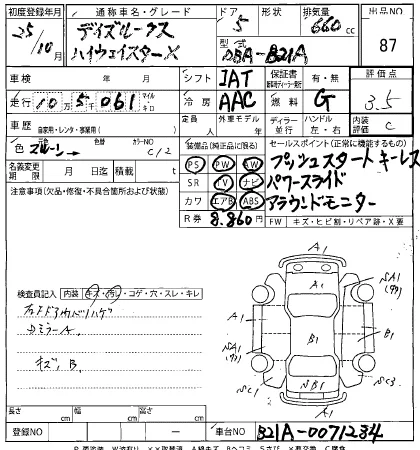 初度登録年月 通称車名・グレード ドア 形状 排気量 出品NO
25/10月 デイズルークス ハイウェイスターX 5 660cc 87
型式 DBA-B21A
車検 年 月 シフト IAT 保証書 有・無 評価点
走行 10万5千061 マイル キロ 冷房 AAC 燃料 G 3.5
車歴 自家用・レンタ・事業用( ) 定員 人 外車モデル 年 ディーラー 並行 ハンドル 左・右 内装 C
色 色替 カラーNO C12 装備品(純正品に限る) セールスポイント(正常に機能するもの)
PS PW AW プッシュスタート キーレス
名義変更期限 月 日迄 積載 t SR TV ナビ パワースライド
注意事項(欠品・修復・不具合箇所および状態) カワ エアB ABS アラウンドモニター
R券 8.860円 FW キズ・ヒビ割・リペア跡・X要
A1
A1
検査員記入 内装 キズ・汚レ・コゲ・穴・スレ・キレ
キズ, B.
A1 B1 A1
SC1 NB1 SC3
長さ cm 幅 cm 高さ cm
登録NO 車台NO B21A-0071234